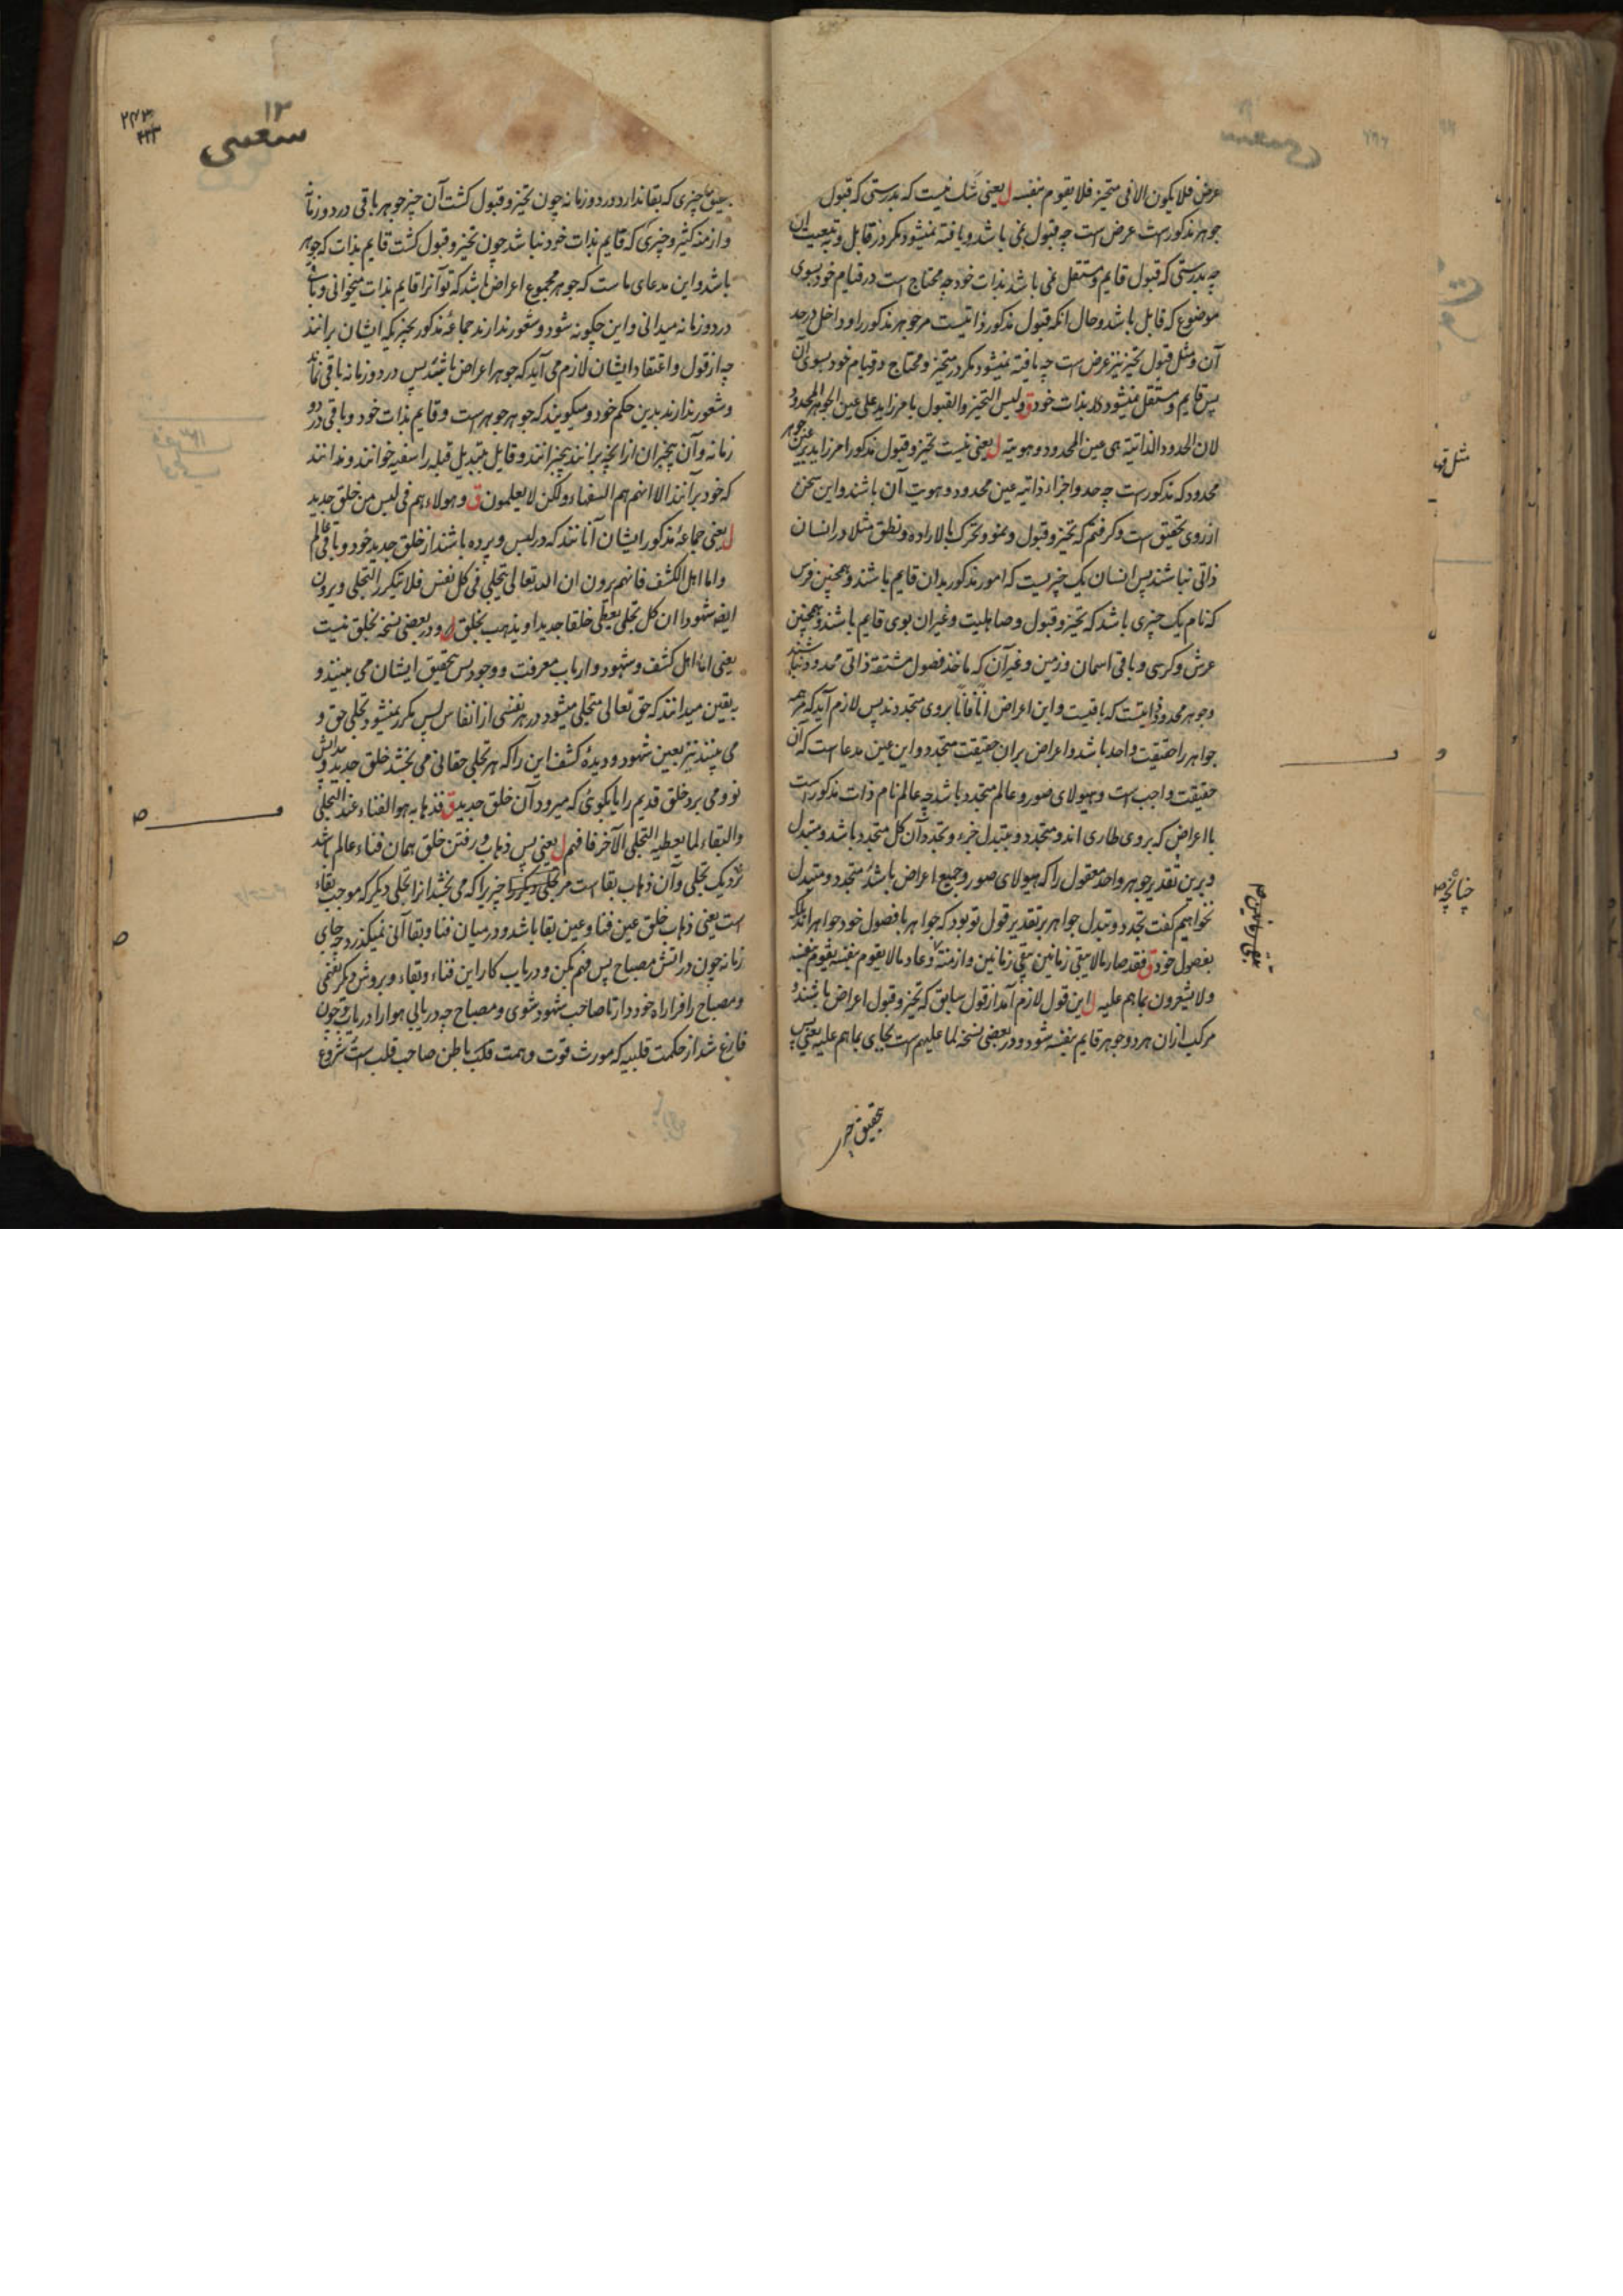 عرض فلا یکون الا فی متحیز فلا یقوم بنفسه ل یعنی شک نیست که بدرستی که قبول
جوهر مذکورست عرض است چه قبول نمی باشد و یافته نمیشود مکر در قابل و به تبعیت ان
چه بدرستی که قبول قایم و مستقل نمی باشد بذات خود چه محتاج است در قیام خود بسوی
موضوع که قابل باشد و حال انکه قبول مذکور ذاتیست مر جوهر مذکور را و داخل در حد
آن و مثل قبول تحیز نیز عرض است چه یافته نمیشود مکر در متحیز و محتاج در قیام خود بسوی آن
پس قایم و مستقل نمیشود بذات خود ق ولیس التحیز والقبول بامر زاید علی عین الجوهر المحدود
لان الحدود الذاتیة هی عین المحدود و هویته ل یعنی نیست تحیز و قبول مذکور امر زاید بر عین جوهر
محدود که مذکورست چه حد و اجزاء ذاتیه عین محدود و هویت آن باشند و این سخن
از روی تحقیق است و کر فتم که تحیز و قبول و نمو و تحرک بالاراده و نطق مثلا در انسان
ذاتی نباشند پس انسان یک چیزیست که امور مذکور بدان قایم باشند و همچنین فرس
که نام یک چیزی باشد که تحیز و قبول و صاهلیت و غیران بوی قایم باشند و همچنین
عرش و کرسی و باقی اسمان و زمین و غیر آن که ماخذ فصول مشتقه ذاتی محدود نباشند
و جوهر محدود ذاتیست که باقیست و این اعراض انا فانا بروی متجددند پس لازم آید که همه
جواهر را حقیقت واحد باشد و اعراض بران حقیقت متجدد و این عین مدعا است که آن
حقیقت واجب است و هیولای صور و عالم متجدد باشد چه عالم نام ذات مذکور است
با اعراض که بروی طاری اند و متجدد و بتبدل جزء و تجدد آن کل متجدد باشد و متبدل
و برین تقدیر جوهر واحد معقول را که هیولای صور و جمیع اعراض باشد متجدد و متبدل
نخواهیم گفت تجدد و تبدل جواهر بر تقدیر قول تو بود که جواهر با فصول خود جواهر اند بلکه
بفصول خود ق فقد صار مالا یبقی زمانین یبقی زمانین و ازمنة و عاد مالا یقوم بنفسه یقوم بنفسه
ولا یشعرون بما هم علیه ل این قول لازم آمد از قول سابق که تحیز و قبول اعراض باشند و
مرکب ازان هر دو جوهر قایم بنفسه شود و در بعضی نسخه لما علیهم است بجای بما هم علیه یعنی پس
بتحقیق چیز
مثل قو
چنانچه
۱۳
سعسی
۲۷۳
بتحقیق چیزی که بقا ندارد در دو زمانه چون تحیز و قبول کشت آن چیز جوهر باقی در دو زمانه
و ازمنه کثیر و چیزی که قایم بذات خود نباشد چون تحیز و قبول کشت قایم بذات که جوهر
باشد و این مدعای ماست که جوهر مجموع اعراض باشد که تو آنرا قایم بذات میخوانی و باقی
در دو زمانه میدانی و این چکونه شود و شعور ندارند جماعهٔ مذکور بچیزیکه ایشان برانند
چه از قول و اعتقاد ایشان لازم می آید که جوهر اعراض باشند پس در دو زمانه باقی نماند
و شعور ندارند بدین حکم خود و میکویند که جوهر جوهر است و قایم بذات خود و باقی در دو
زمانه و آن بیخبران ازانچه برانند بیخبرانند و قایل بتبدیل قبله را سفیه خوانند و ندانند
که خود برانند الا انهم هم السفهاء ولکن لا یعلمون ق و هولاء هم فی لبس من خلق جدید
ل یعنی جماعهٔ مذکور ایشان آنانند که در لبس و پرده باشند از خلق جدید خود و باقی عالم
و اما اهل الکشف فانهم یرون ان الله تعالی یتجلی فی کل نفس فلا یتکرر التجلی و یرون
ایضا شهودا ان کل تجلی یعطی خلقا جدیدا و یذهب بخلق ل و در بعضی نسخه بخلق نیست
یعنی اما اهل کشف و شهود و ارباب معرفت و وجود پس بتحقیق ایشان می بینند و
به یقین میدانند که حق تعالی متجلی میشود در هر نفسی از انفاس پس مکرر نمیشود تجلی حق و
می بینند نیز بعین شهود و دیدهٔ کشف این را که هر تجلی حقانی می بخشد خلق جدید و پیدایش
نو و می برد خلق قدیم را یا بکوئ که میرود آن خلق جدید ق فذهابه هو الفناء عند التجلی
والبقاء لما یعطیه التجلی الآخر فافهم ل یعنی پس ذهاب و رفتن خلق همان فناء عالم باشد
نزدیک تجلی و آن ذهاب بقا است مر چیزیرا که می بخشد از تجلی دیکر که موجب بقاء
است یعنی ذهاب خلق عین فنا و عین بقا باشد و در میان فنا و بقا آنی نمیکذرد چه جای
زمانه چون در آتش مصباح پس فهم بکن و دریاب کار این فناء و بقاء و بروش دیکر بفهمی
و مصباح را فرا راه خود دار تا صاحب شهود شوی و مصباح چه دریابی هوا را دریاب و چون
فارغ شد از حکمت قلبیه که مورث قوت و همت قلب باطن صاحب قلب است شروع